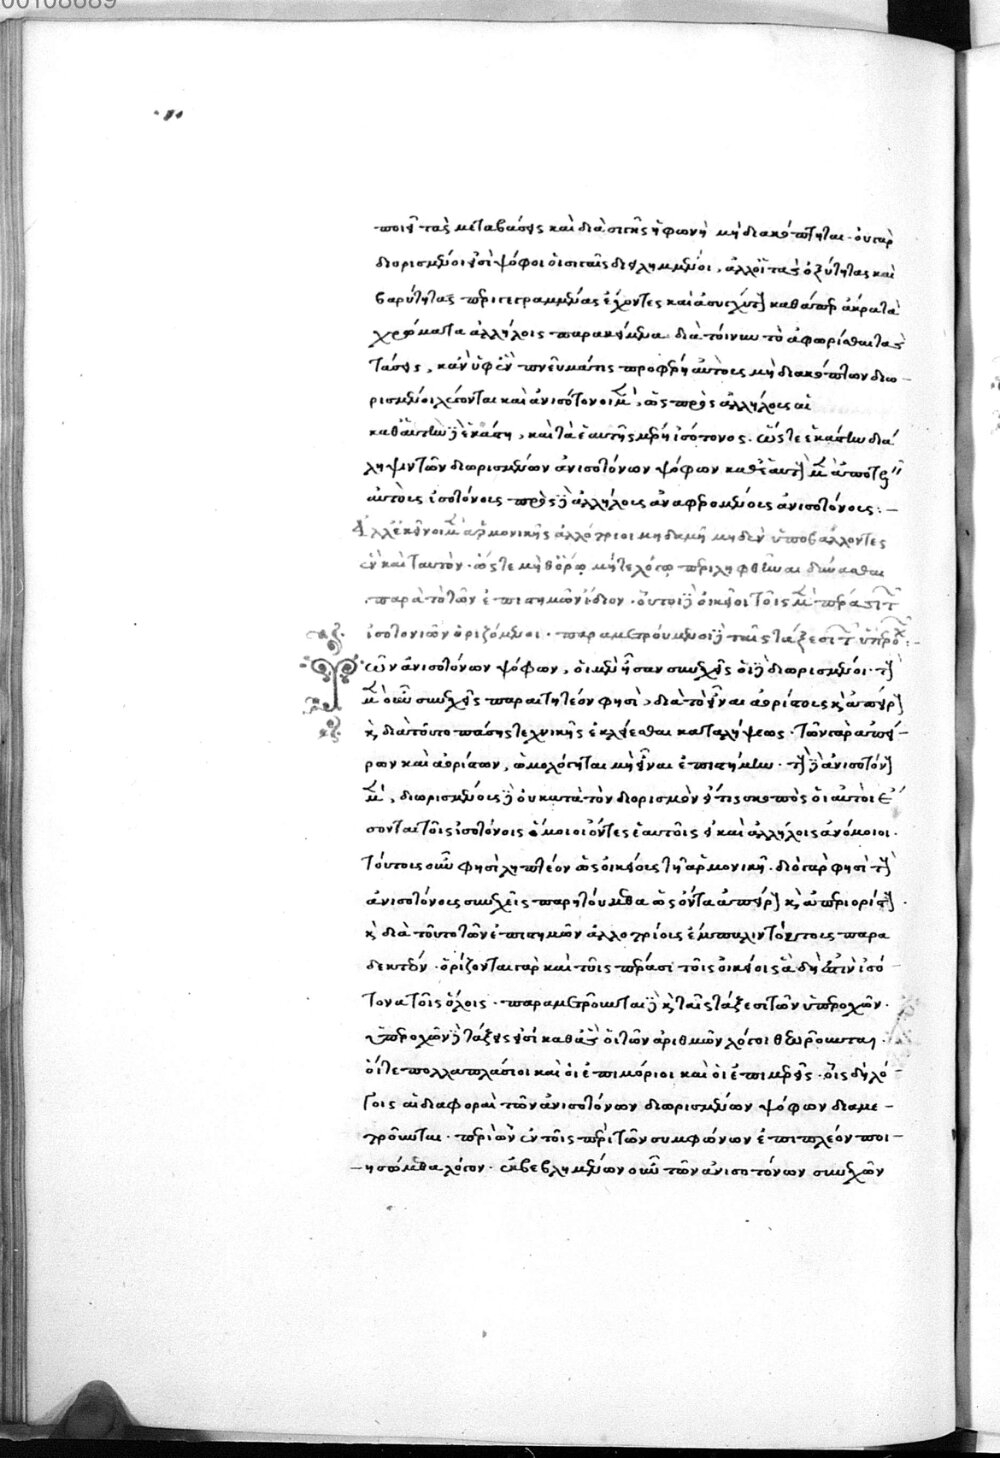 00108089
ποιῇ τὰς μεταβάσεις καὶ διὰ σιγῆς ἡ φωνὴ μὴ διακόπτηται. οὐ γὰρ
διωρισμένοι εἰσὶ ψόφοι οἱ σιγαῖς διειλημμένοι, ἀλλ' οἱ τὰς ὀξύτητας καὶ
βαρύτητας περιγεγραμμένας ἔχοντες καὶ ἀσυγχύτους καθάπερ ἄκρατα
χρώματα ἀλλήλοις παρακείμενα διὰ τοίνυν τὸ ἀφωρίσθαι τὰς
τάσεις, κἂν ὑφ' ἓν πνεύματί τις προφέρῃ αὐτοὺς μὴ διακόπτων διω-
ρισμένοι λέγονται καὶ ἀνισότονοι μὲν, ὡς πρὸς ἀλλήλους αἱ
καθ' αὑτὴν δὲ ἑκάστη, καὶ τὰ ἑαυτῆς μέρη ἰσότονος. ὥστε ἑκάστην διά
ληψιν τῶν διωρισμένων ἀνισοτόνων ψόφων καθ' ἑαυτὴν μὲν ἀποτε
αὐτοὺς ἰσοτόνους πρὸς δὲ ἀλλήλους ἀναφερομένους ἀνισοτόνους:-
Ἀλλ' ἐκεῖνοι μὲν ἁρμονικῆς ἀλλότριοι μηδαμῆ μηδὲν ὑποβάλλοντες
ἓν καὶ ταυτόν. ὥστε μήθ' ὅρῳ μήτε λόγῳ περιληφθῆναι δύνασθαι
παρὰ τὸ τῶν ἐπιστημῶν ἴδιον. οὗτοι δὲ οἰκεῖοι τοῖς μὲν πέρασι τῶν
ἰσοτονιῶν ὁριζόμενοι. παραμετρούμενοι δὲ ταῖς τάξεσι τῶν ὑπεροχῶν:
Τῶν ἀνισοτόνων ψόφων, οἱ μὲν ἦσαν συνεχεῖς οἱ δὲ διωρισμένοι. τοὺς
μὲν οὖν συνεχεῖς παραιτητέον φησὶ, διὰ τὸ εἶναι ἀορίστους καὶ ἀπείρους
καὶ διὰ τοῦτο πάσης τεχνικῆς ἐκκλίνεσθαι καταλήψεως. τῶν γὰρ ἀπεί-
ρων καὶ ἀορίστων, ὡμολόγηται μὴ εἶναι ἐπιστήμην. τοὺς δὲ ἀνισοτόνους
μὲν, διωρισμένους δὲ οὐ κατὰ τὸν διορισμὸν εἴ τις σκοπὸς οἱ αὐτοὶ ἔ
σονται τοῖς ἰσοτόνοις ὅμοιοι ὄντες ἑαυτοῖς εἰ καὶ ἀλλήλοις ἀνόμοιοι.
τούτους οὖν φησὶ ληπτέον ὡς οἰκείους τῇ ἁρμονικῇ. διὸ γὰρ φησὶ τοὺς
ἀνισοτόνους συνεχεῖς παρῃτούμεθα ὡς ὄντας ἀπείρους καὶ ἀπεριορίστους.
καὶ διὰ τοῦτο τῶν ἐπιστημῶν ἀλλοτρίους ἔμπαλιν τούτους παρα
δεκτέον. ὁρίζονται γὰρ καὶ τοῖς πέρασι τοῖς οἰκείοις ἃ δή ἐστιν ἰσό
τονα τοῖς ὅλοις. παραμετροῦνται δὲ καὶ ταῖς τάξεσι τῶν ὑπεροχῶν.
ὑπεροχῶν δὲ τάξεις εἰσὶ καθ' ἃς οἱ τῶν ἀριθμῶν λόγοι θεωροῦνται.
οἵ τε πολλαπλάσιοι καὶ οἱ ἐπιμόριοι καὶ οἱ ἐπιμερεῖς. οἷς δὴ λό-
γοις αἱ διαφοραὶ τῶν ἀνισοτόνων διωρισμένων ψόφων διαμε-
τροῦνται. περὶ ὧν ἐν τοῖς περὶ τῶν συμφώνων ἐπιπλέον ποι-
ησώμεθα λόγον. ἐκβεβλημένων οὖν τῶν ἀνισοτόνων συνεχῶν